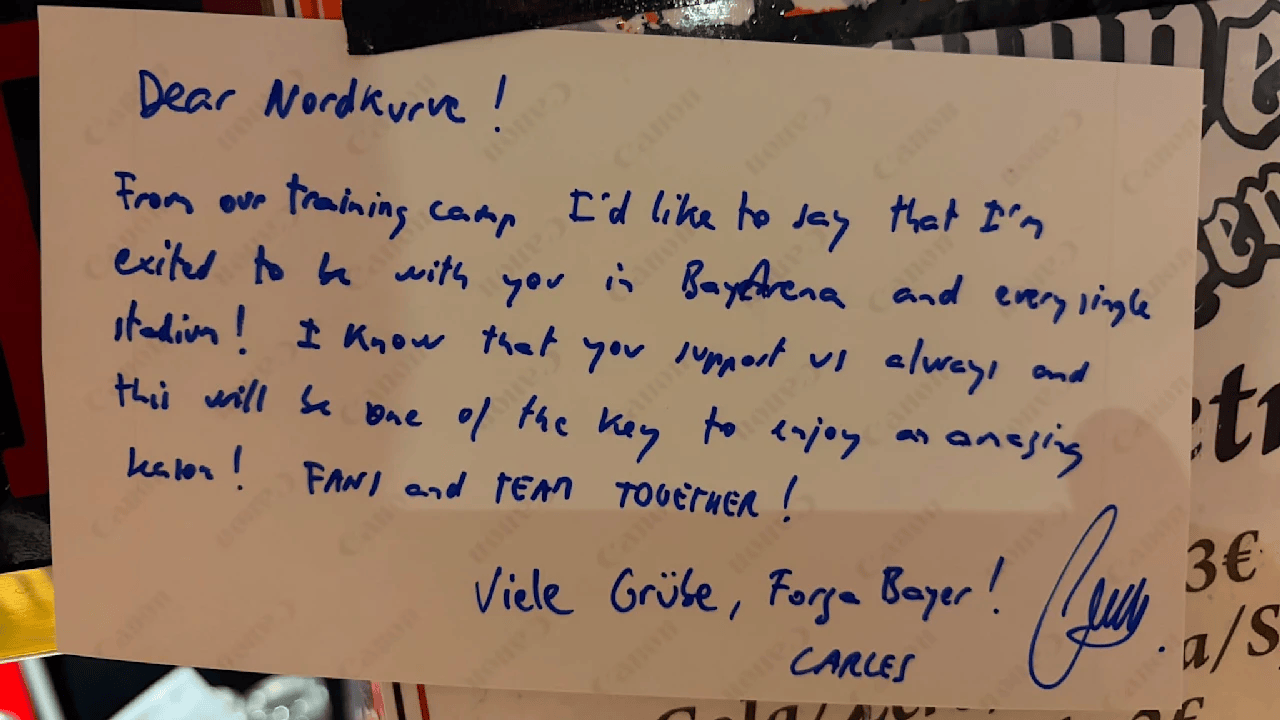 Dear Nordkurve !
From our training camp I'd like to say that I'm
exited to be with you in BayArena and every single
stadium! I know that you support us always and
this will be one of the key to enjoy an amazing
season! FANS and TEAM TOGETHER!
Viele Grüße, Força Bayer!
CARLES
3€
Canon